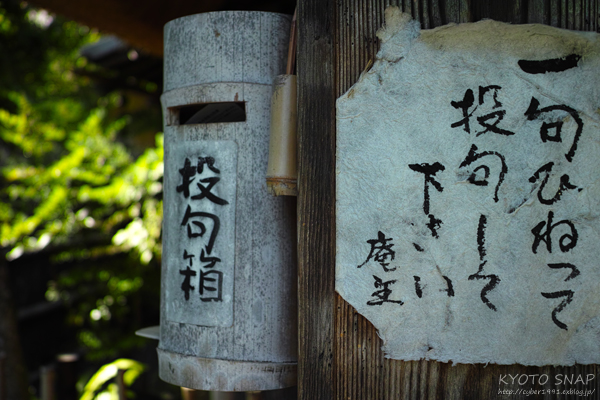 一句ひねって
投句して
下さい
庵主
投句箱
KYOTO SNAP
http://cyber1991.exblog.jp/